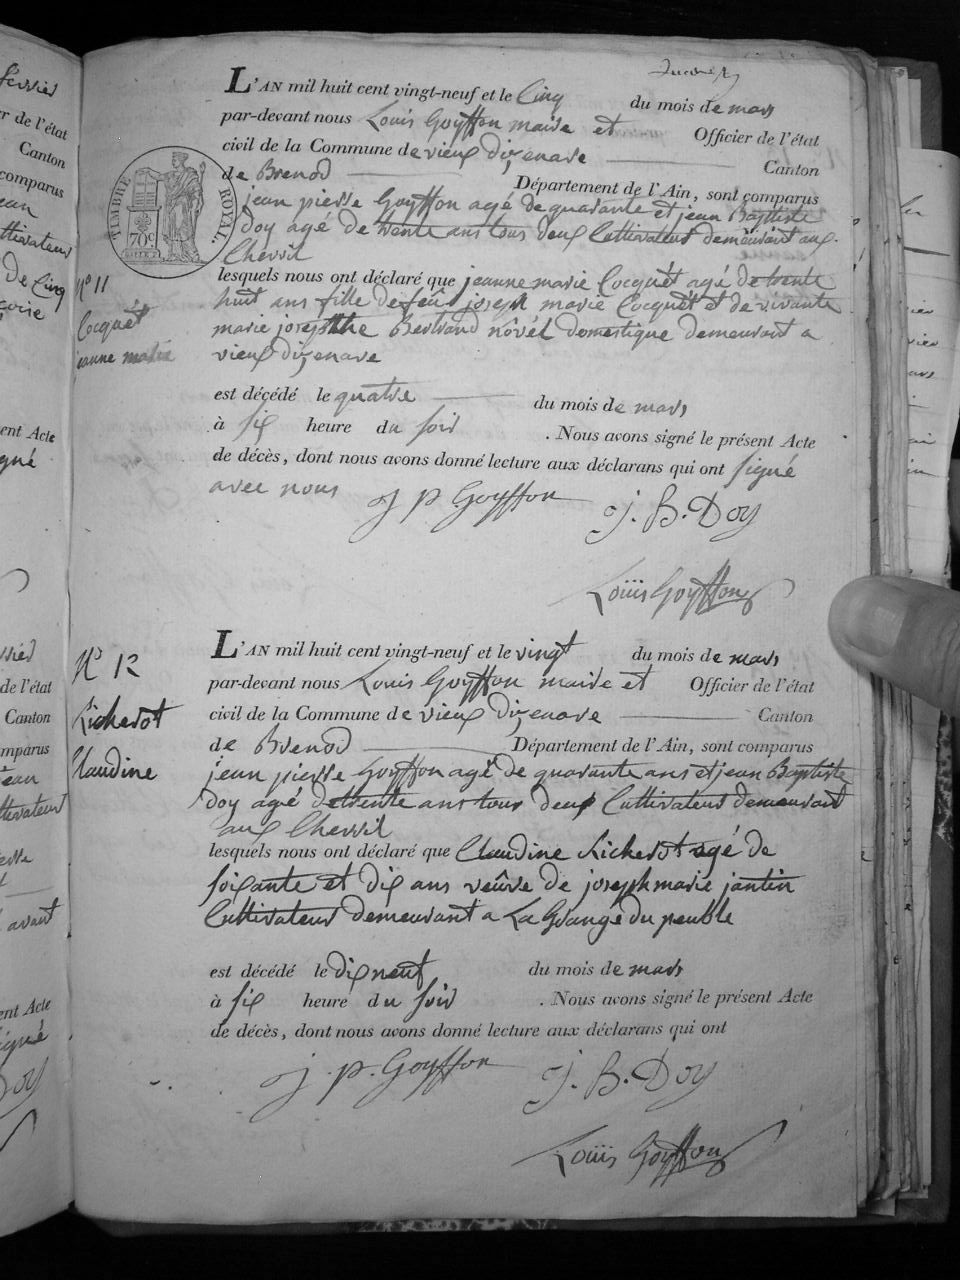 L'AN mil huit cent vingt-neuf et le Cinq du mois de mars
par-devant nous Louis Goyffon maire et Officier de l'état
civil de la Commune de vieux dizenave Canton
de Brenod Département de l'Ain, sont comparus
jean pierre Goyffon agé de quarante et jean Baptiste
Doy agé de trente ans tous deux Cultivateurs demeurant aux
Cherril
lesquels nous ont déclaré que jeanne marie Cocquet agé de trente
huit ans fille de feû joseph marie Cocquêt et de vivante
marie josephthe Bertrand Novél domestique demeurant a
vieux dizenave
est décédé le quatre du mois de mars
à six heure du soir . Nous avons signé le présent Acte
de décès, dont nous avons donné lecture aux déclarans qui ont signé
avec nous
J p Goyffon J. B. Doy
Louis Goyffon
TIMBRE ROYAL
70 c
N° 11
Cocquêt
jeanne marie
L'AN mil huit cent vingt-neuf et le vingt du mois de mars
par-devant nous Louis Goyffon maire et Officier de l'état
civil de la Commune de vieux dizenave Canton
de Brenod Département de l'Ain, sont comparus
jean pierre Goyffon agé de quarante ans et jean Baptiste
Doy agé de trente ans tous deux Cultivateurs demeurant
aux Cherril
lesquels nous ont déclaré que Claudine Richerot agé de
soixante et dix ans veûve de joseph marie jantin
Cultivateur demeurant a La Grange du peuble
est décédé le dix neuf du mois de mars
à six heure du soir . Nous avons signé le présent Acte
de décès, dont nous avons donné lecture aux déclarans qui ont
J. p. Goyffon J. B. Doy
Louis Goyffon
N° 12
Richerot
Claudine